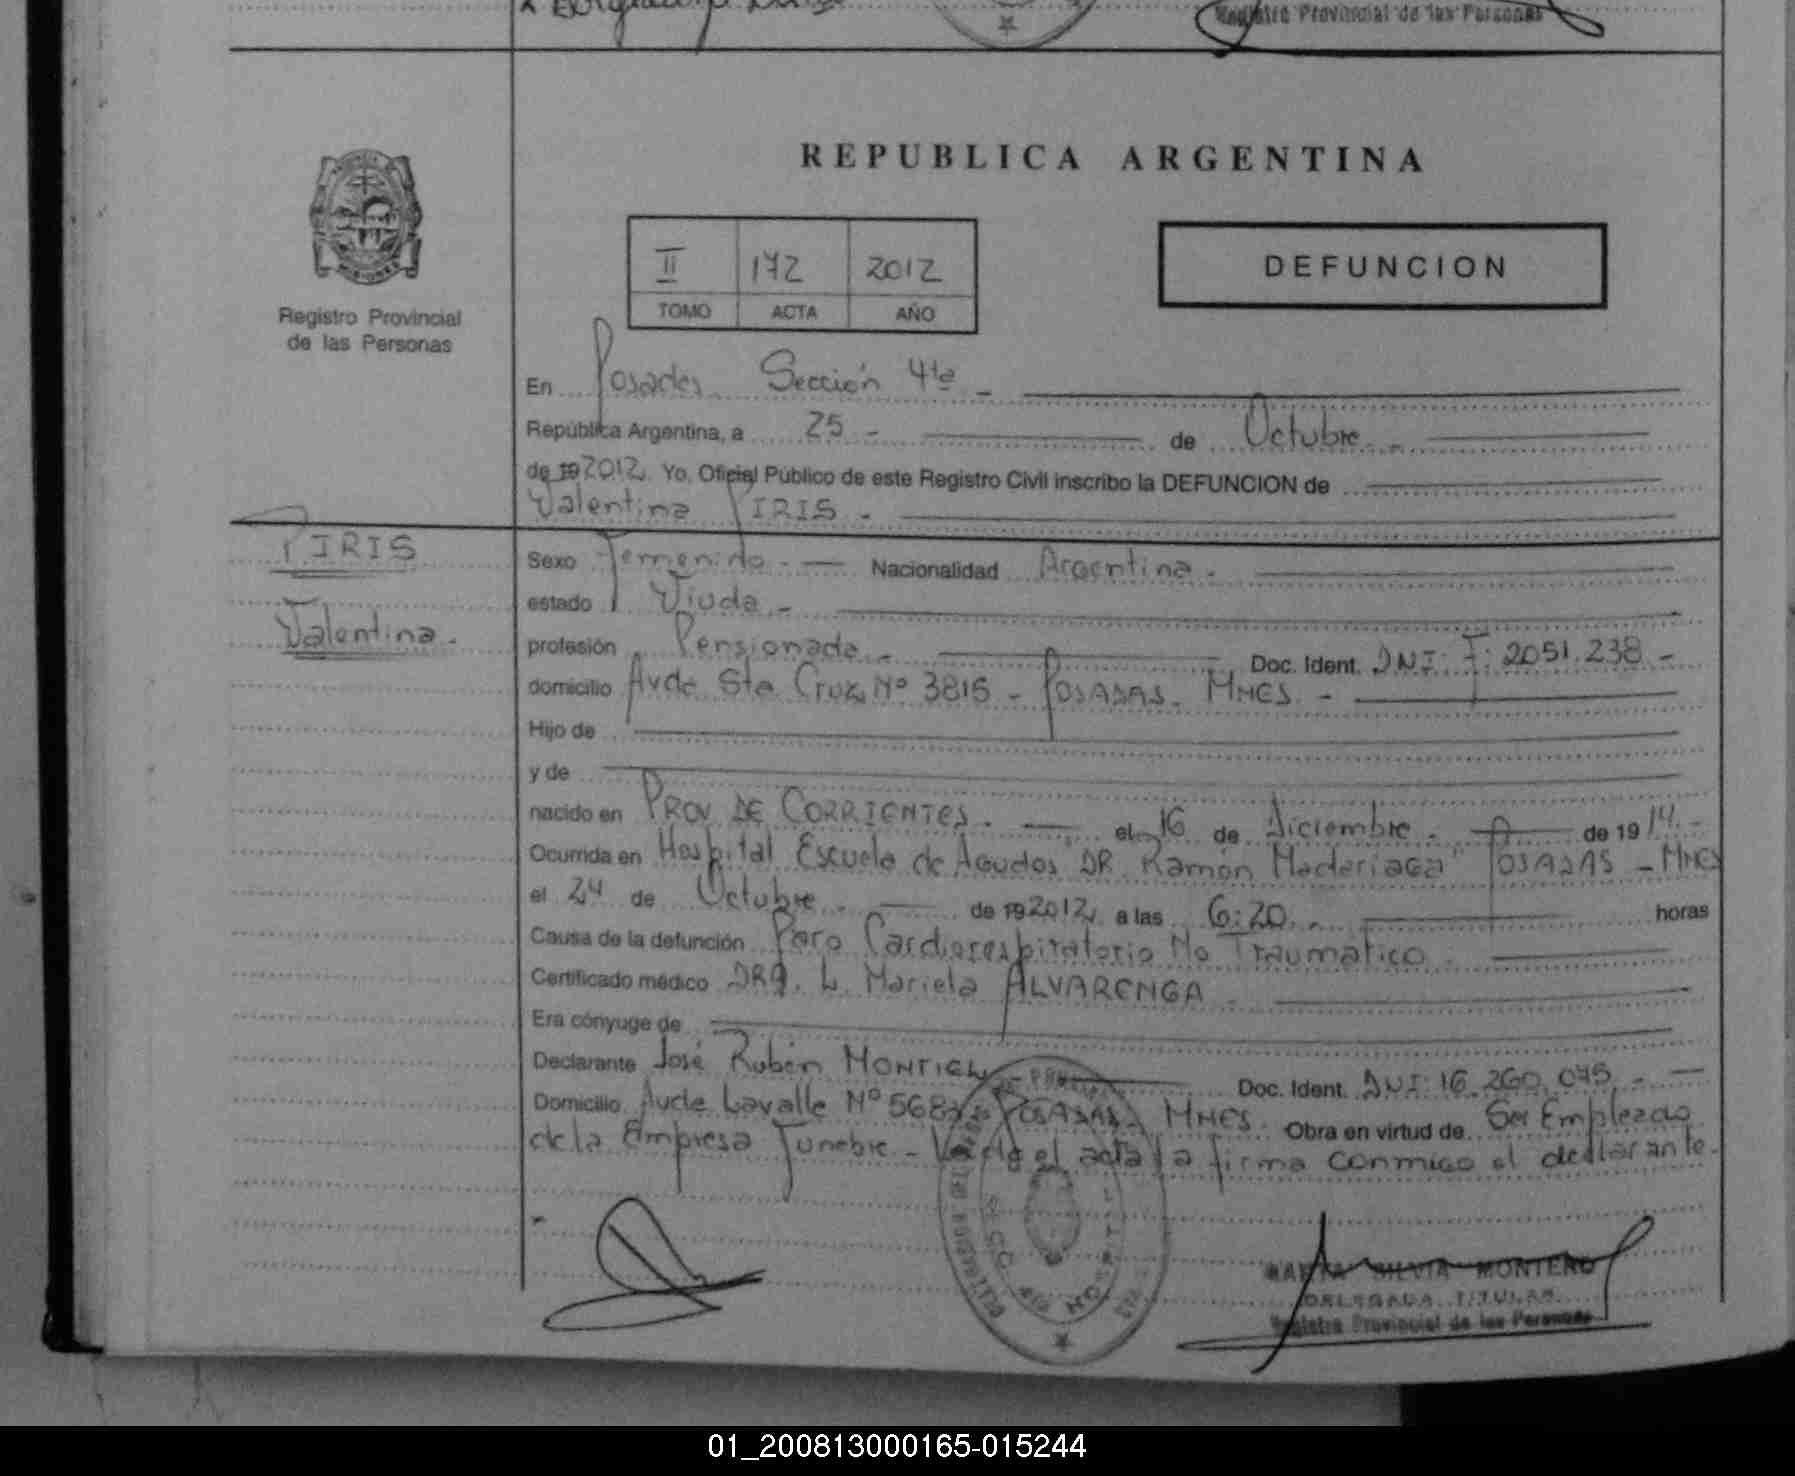 Registro Provincial de las Personas
REPUBLICA ARGENTINA
II 172 2012
TOMO ACTA AÑO
DEFUNCION
MISIONES
Registro Provincial
de las Personas
En Posadas Sección 4ta -
República Argentina, a 25 - de Octubre -
de 19 2012. Yo, Oficial Público de este Registro Civil inscribo la DEFUNCION de
Valentina PIRIS -
PIRIS
Valentina -
Sexo Femenino - Nacionalidad Argentina -
estado Viuda -
profesión Pensionada - Doc. Ident. DNI: F: 2051.238 -
domicilio Avda Sta Cruz Nº 3815 - POSADAS - MNES -
Hijo de
y de
nacido en PROV DE CORRIENTES - el 16 de Diciembre - de 19 14 -
Ocurrida en Hospital Escuela de Agudos "DR Ramón Madariaga" POSADAS - MNES
el 24 de Octubre - de 19 2012 a las 6:20 - horas
Causa de la defunción Paro Cardiorespiratorio No Traumatico -
Certificado médico DRA. L. Mariela ALVARENGA -
Era cónyuge de
Declarante José Rubén MONTIEL Doc. Ident. DNI: 16.260.075 -
Domicilio Avde Lavalle Nº 5682 POSADAS - MNES - Obra en virtud de Ser Empleado
de la Empresa Funebre - Leida el acta la firma conmigo el declarante.
SECC 4ta HOSPITAL
MARTA SILVIA MONTERO
DELEGADA TITULAR
Registro Provincial de las Personas
01_200813000165-015244